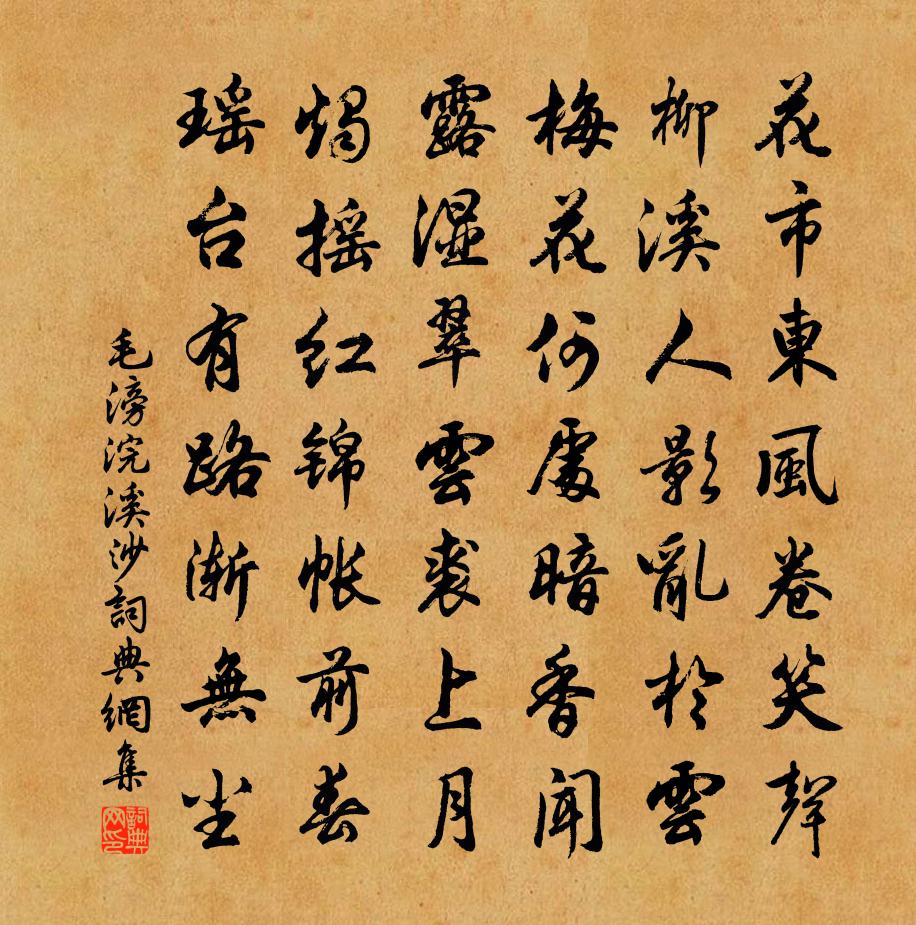 花市東風卷笑聲
柳溪人影亂於雲
梅花何處暗香聞
露濕翠雲裘上月
燭搖红锦帐前春
瑶台有路渐無尘
毛滂浣溪沙詞典網集
詞典网印